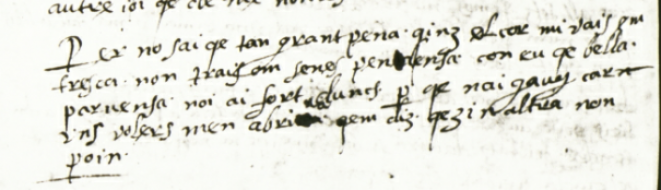 autre ioi qe de me non
Per no sai qe tan grant pena · qinz el cor mi vais om
tresca · non traig om senes penedensa con eu qe bella ·
parvensa noi ai fort aduncs p qe nai gauig car
uns volers men abri qem diz qez in altra non
poin ·